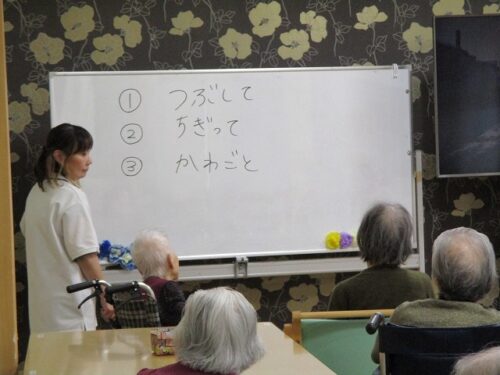 ① つぶして
② ちぎって
③ かわごと